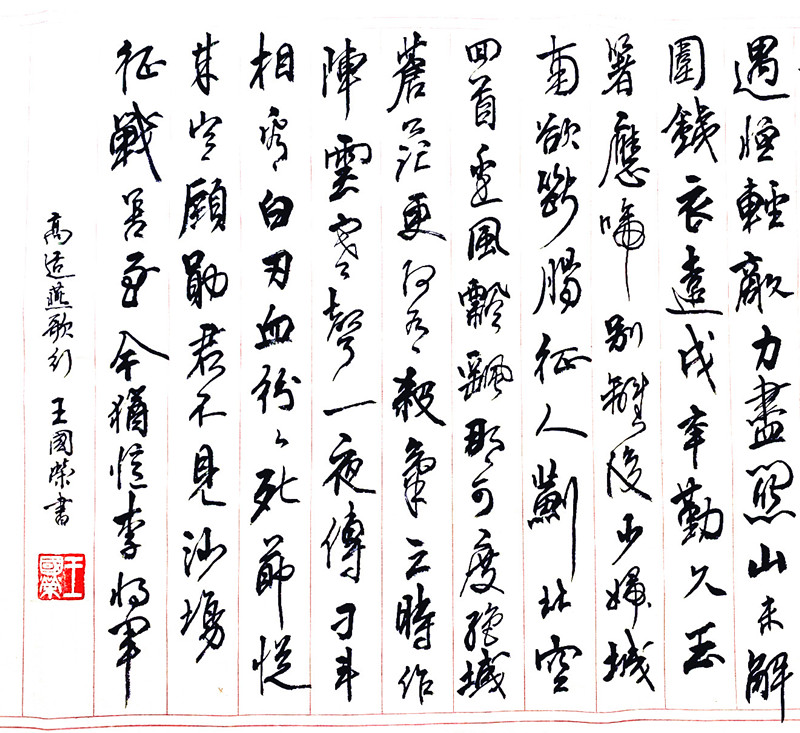 遇恆輕敵力盡關山未解
圍鐵衣遠戍辛勤久玉
箸應啼別離後少婦城
南欲斷腸征人薊北空
回首邊風飄颻那可度絕域
蒼茫更何有殺氣三時作
陣雲寒聲一夜傳刁斗
相看白刃血紛々死節從
來豈顧勛君不見沙場
征戰苦至今猶憶李將軍
高适燕歌行 王國榮書
王國榮